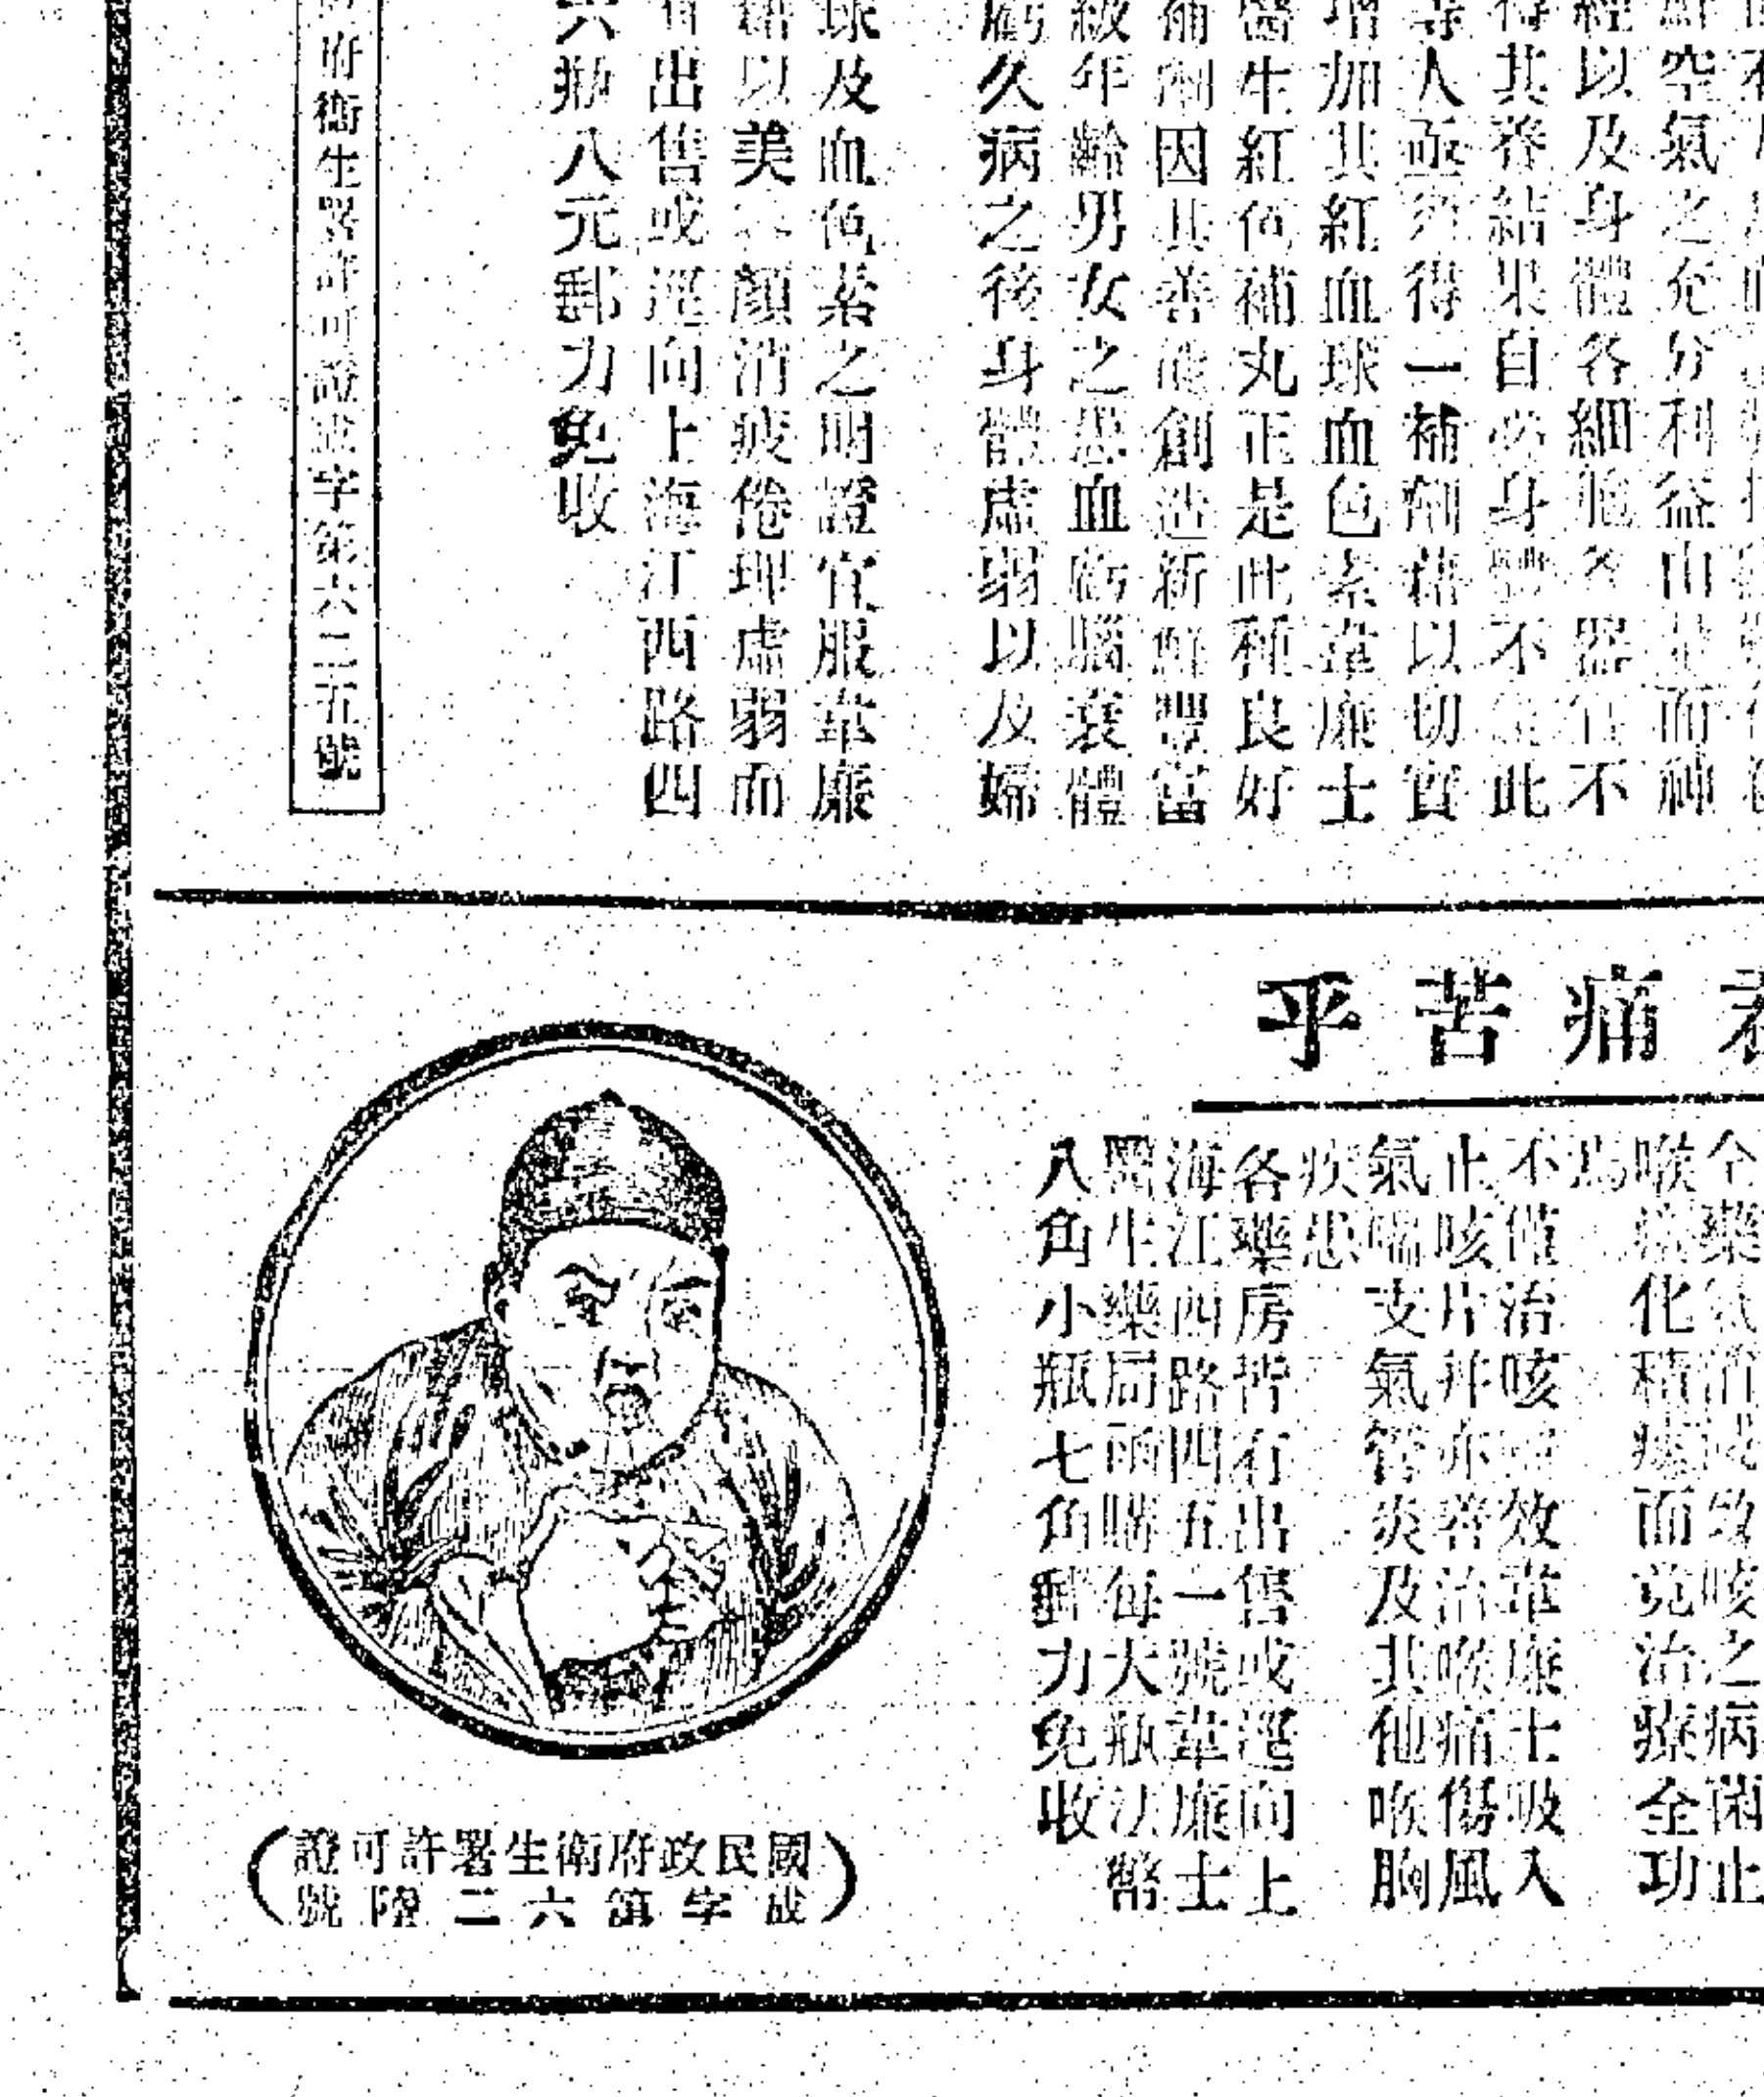 鮮空氣之充分利益由此而神
經以及身體各細胞各器官不
得其養結果自必身體不健此
等人亟須得一補劑藉以切實
增加其紅血球血色素韋廉士
醫生紅色補丸正是此種良好
補劑因其善能創造新鮮豐富
級年齡男女之患血虧腦衰體
虧久病之後身體虛弱以及婦
球及血色素之明證宜服韋廉
藉以美容顏消疲倦理虛弱而
有出售或逕向上海江西路四
六瓶八元郵力免收
府衞生署許可證成字第六二五號
痛苦乎
令藥氣消滅致咳之病菌止
喉痰化積痰而竟治療全功
焉
不僅治咳奇效韋廉士吸入
止咳片并亦善治喉痛傷風
氣喘支氣管炎及其他喉胸
疾患
各藥房皆有出售或逕向上
海江西路四五一號韋廉士
醫生藥局函購每大瓶法幣
八角小瓶七角郵力免收
(國民政府衞生署許可證
成字第六二陸號)